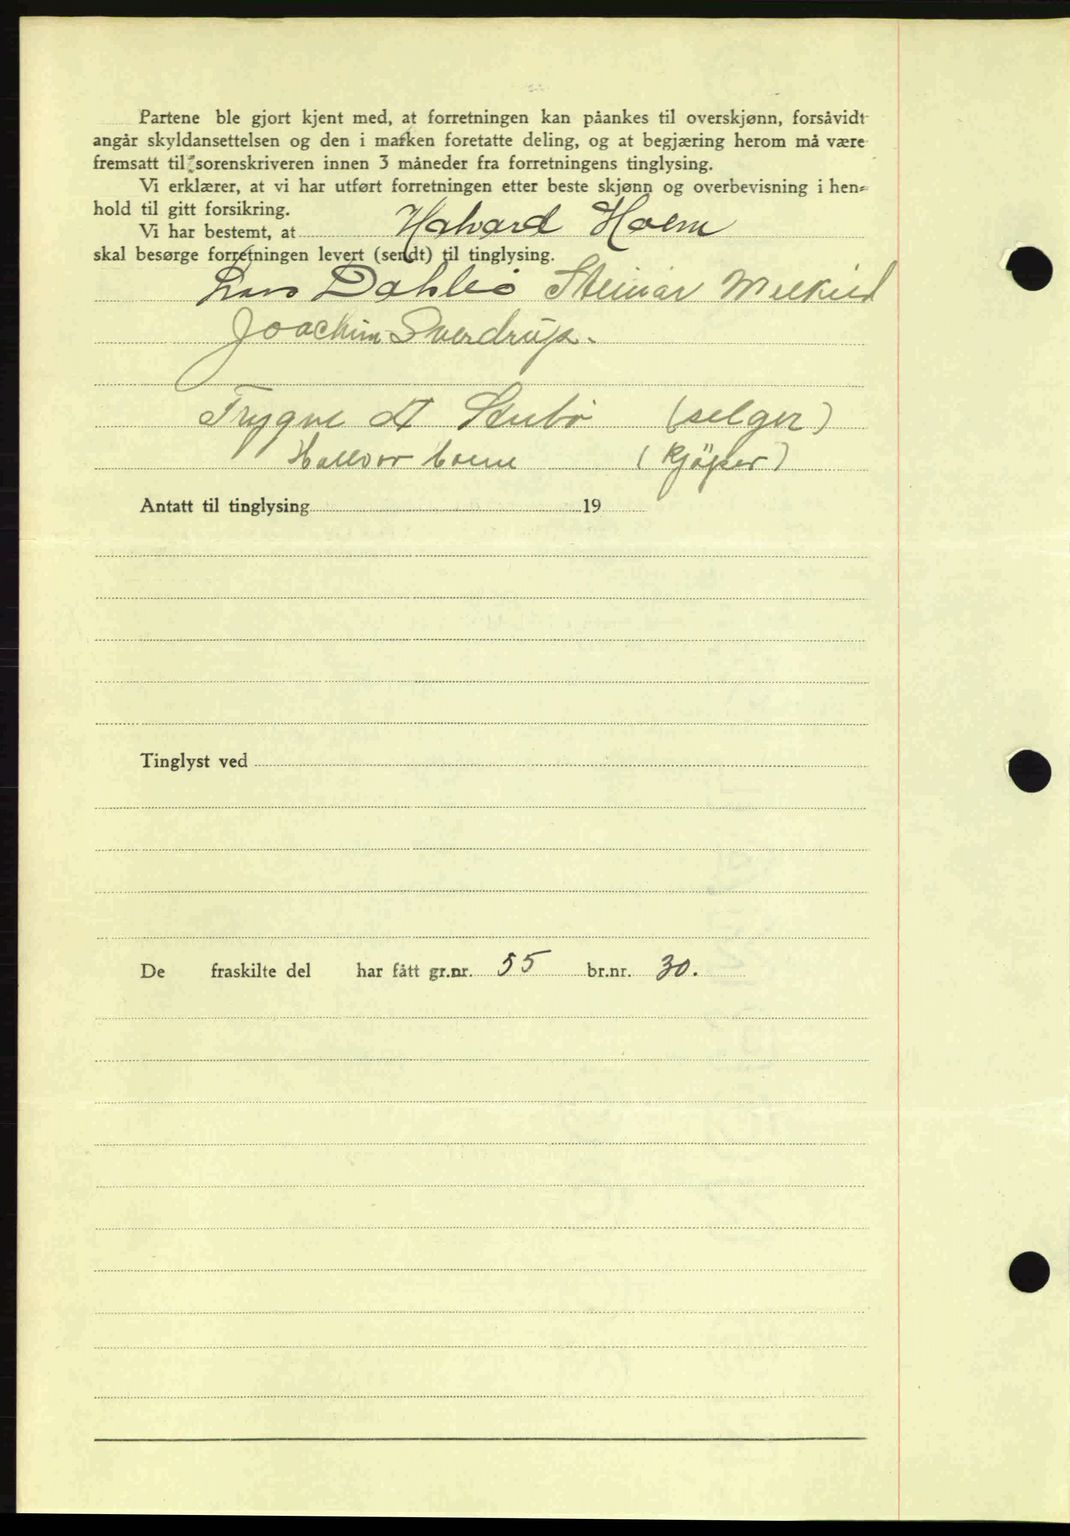 Partene ble gjort kjent med, at forretningen kan påankes til overskjønn, forsåvidt
angår skyldansettelsen og den i marken foretatte deling, og at begjæring herom må være
fremsatt til sorenskriveren innen 3 måneder fra forretningens tinglysing.
Vi erklærer, at vi har utført forretningen etter beste skjønn og overbevisning i hen-
hold til gitt forsikring.
Vi har bestemt, at Halvard Holm
skal besørge forretningen levert (sendt) til tinglysing.
Lars Dahlbo Steinar
Joachim Sverdrup.
Trygve Stubø (selger)
Hallvar Holm (kjøper)
Antatt til tinglysing 19
Tinglyst ved
De fraskilte del har fått gr.nr. 55 br.nr. 30.